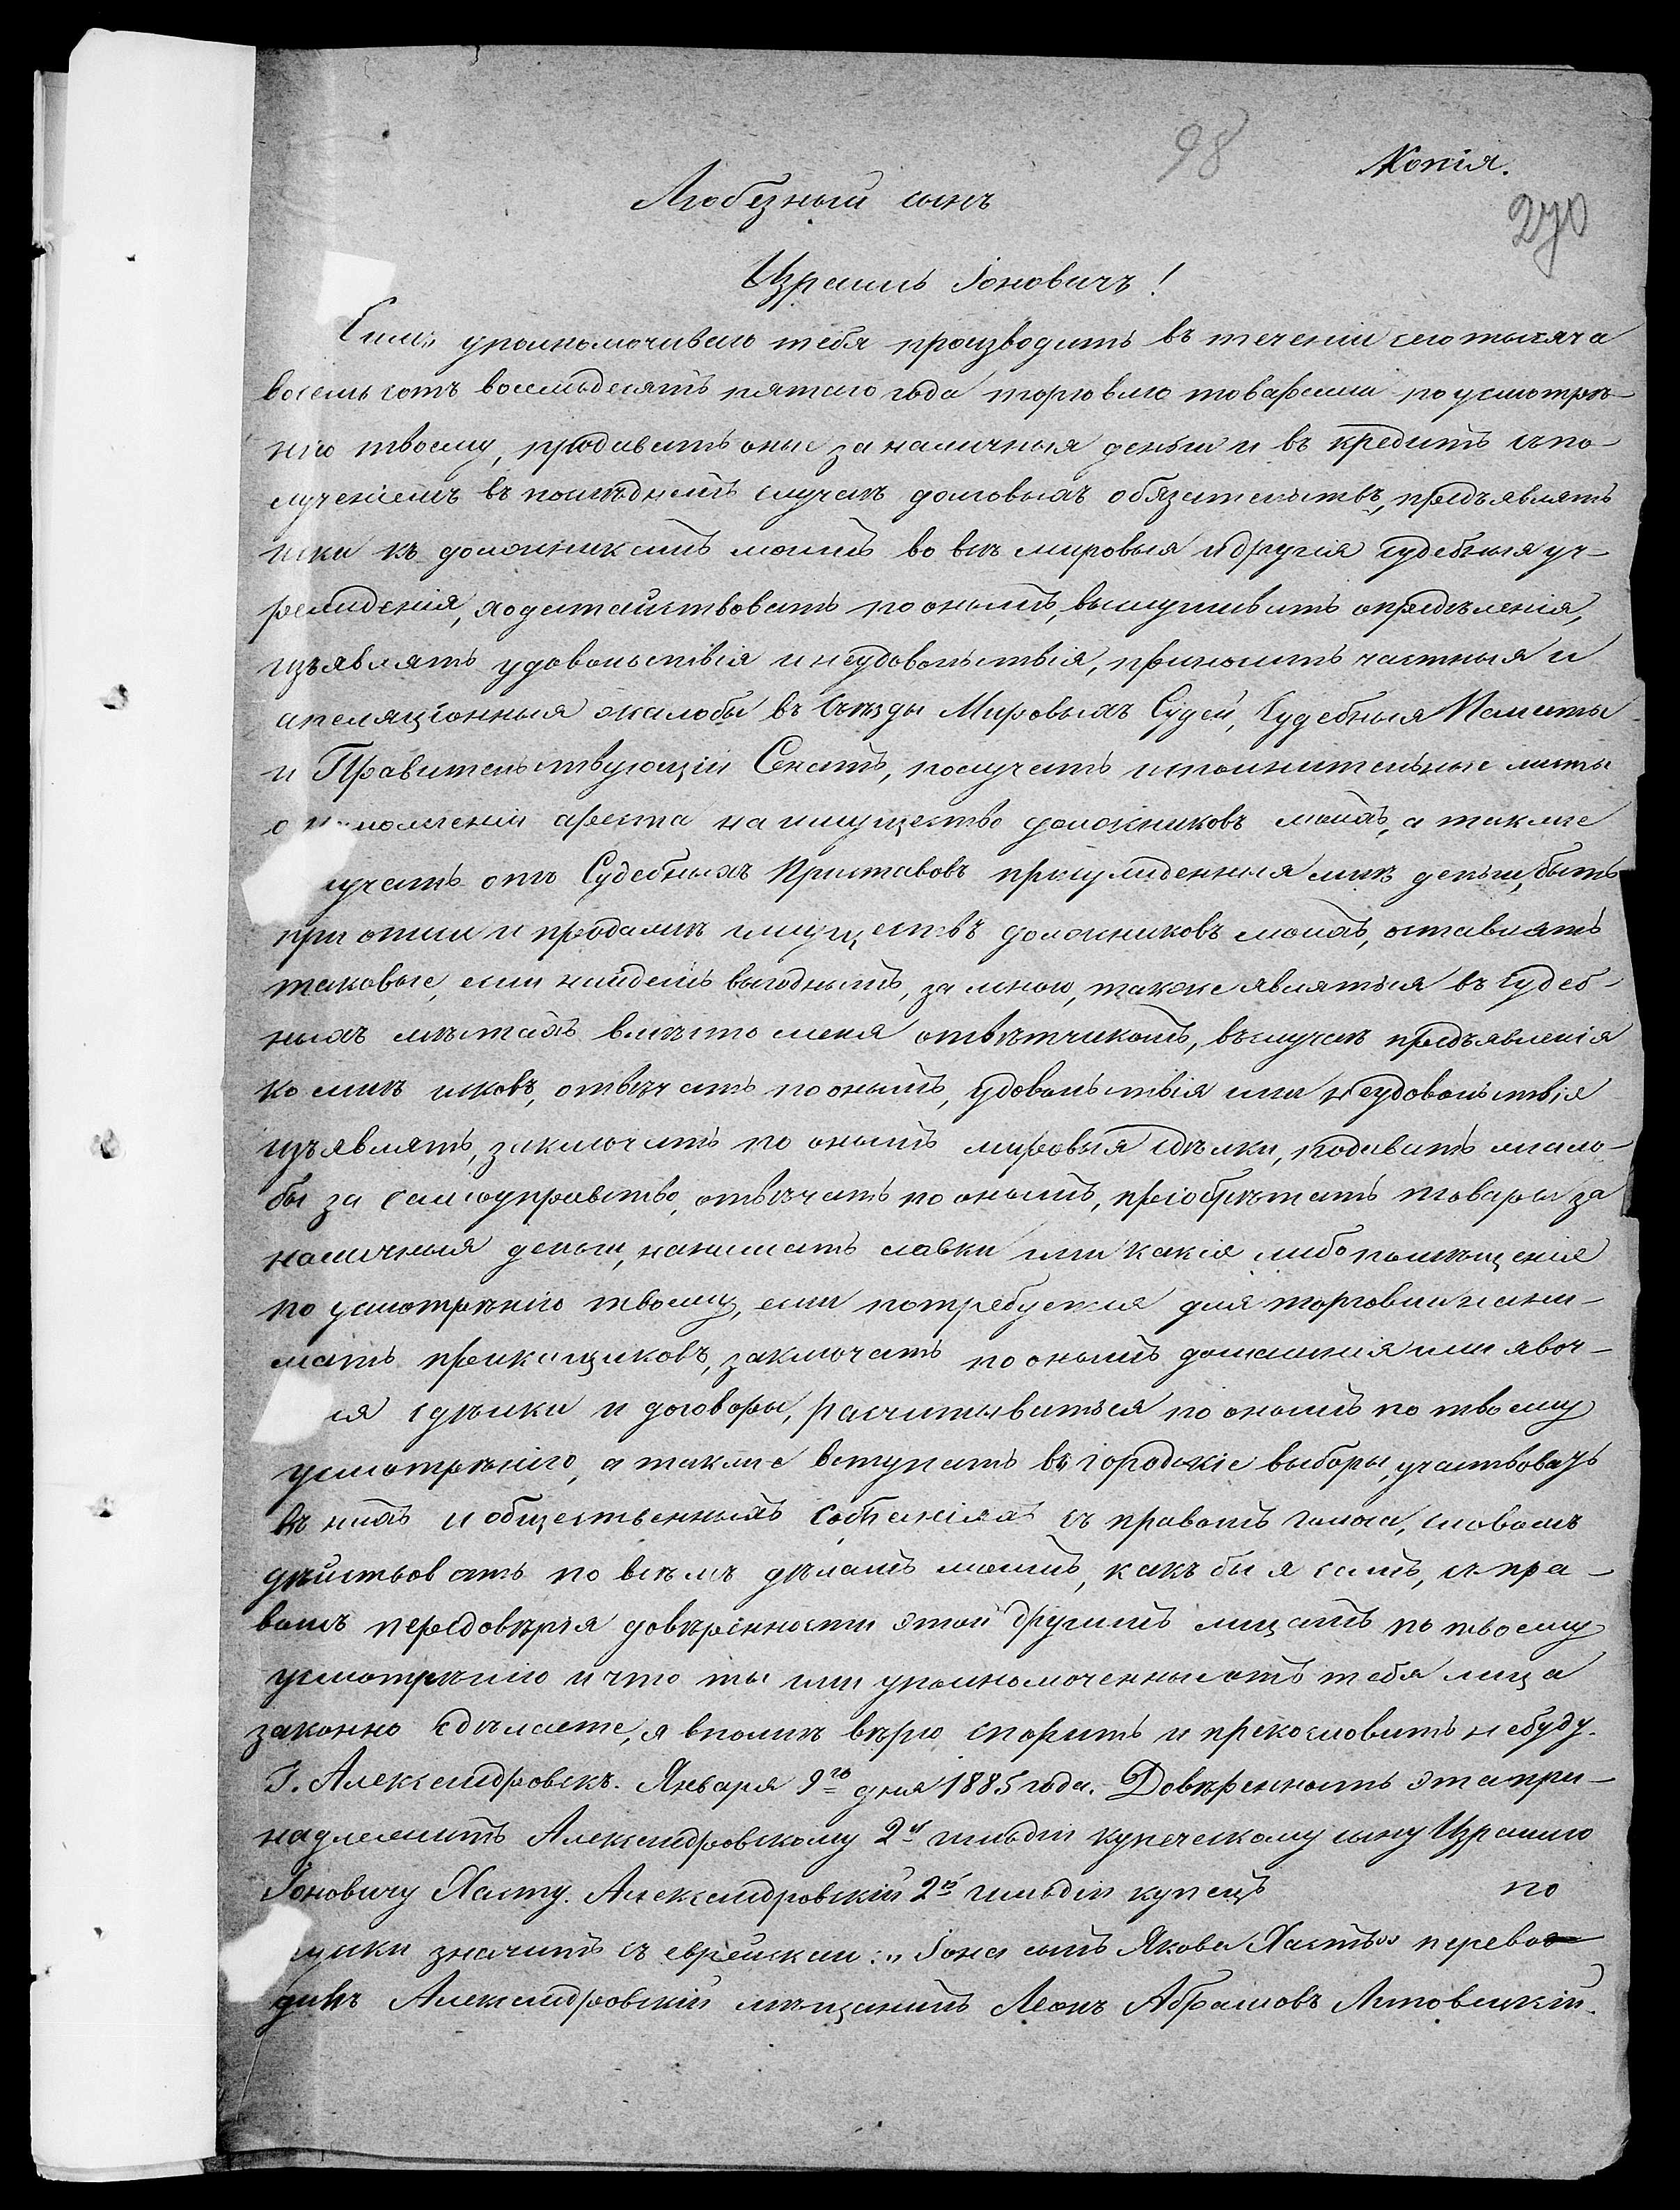 98
Копія.
270
Любезный сынъ
Израиль Іоновичъ!
Симъ уполномочиваю тебя производить въ теченіи сего тысяча
восемьсотъ восемьдесятъ пятаго года торговлю товарами по усмотрѣ-
нію твоему, продавать оные за наличныя деньги и въ кредитъ съ по-
лученіемъ въ послѣднемъ случаѣ долговыхъ обязательствъ, предъявлять
иски къ должникамъ моимъ во всѣ мировыя и другія судебныя уч-
режденія, ходатайствовать по онымъ, выслушивать опредѣленія,
изъявлять удовольствія и неудовольствія, приносить частныя и
апеляціонныя жалобы въ Съѣзды Мировыхъ Судей, Судебныя Палаты
и Правительствующій Сенатъ, получать исполнительные листы
о наложеніи ареста на имущество должниковъ моихъ, а также
лучать отъ Судебныхъ Приставовъ присужденныя мнѣ деньги, быть
при описи и продажѣ имуществъ должниковъ моихъ, оставлять
таковые, если найдешь выгоднымъ, за мною, также являться въ судеб-
ныхъ мѣстахъ вмѣсто меня отвѣтчикомъ, въ случаѣ предъявленія
ко мнѣ исковъ, отвѣчать по онымъ, удовольствія или неудовольствія
изъявлять, заключать по онымъ мировыя сдѣлки, подавать жало-
бы за самоуправство, отвѣчать по онымъ, пріобрѣтать товары за
наличныя деньги, нанимать лавки или какія либо помѣщенія
по усмотрѣнію твоему, если потребуется для торговли нани-
мать прикащиковъ, заключать по онымъ домашнія или явоч-
ыя сдѣлки и договоры, расчитываться по онымъ по твоему
усмотрѣнію, а также вступать въ городскіе выборы, участвовать
въ нихъ и общественныхъ собраніяхъ съ правомъ голоса, словомъ
дѣйствовать по всѣмъ дѣламъ моимъ, какъ бы я самъ, съ пра-
вомъ передовѣрія довѣренности этой другимъ лицамъ по твоему
усмотрѣнію и что ты или уполномоченные отъ тебя лица
законно сдѣлаете, я вполнѣ вѣрю спорить и прекословить не буду.
Г. Александровскъ. Января 9го дня 1885 года. Довѣренность эта при-
надлежитъ Александровскому 2й гильдіи купеческому сыну Израилю
Іоновичу Хасту. Александровскій 2й гильдіи купецъ по
цки значитъ съ еврейски: „Іона сынъ Якова Хастъ" перево
дилъ Александровскій мѣщанинъ Леонъ Абрамовъ Литовецкій.